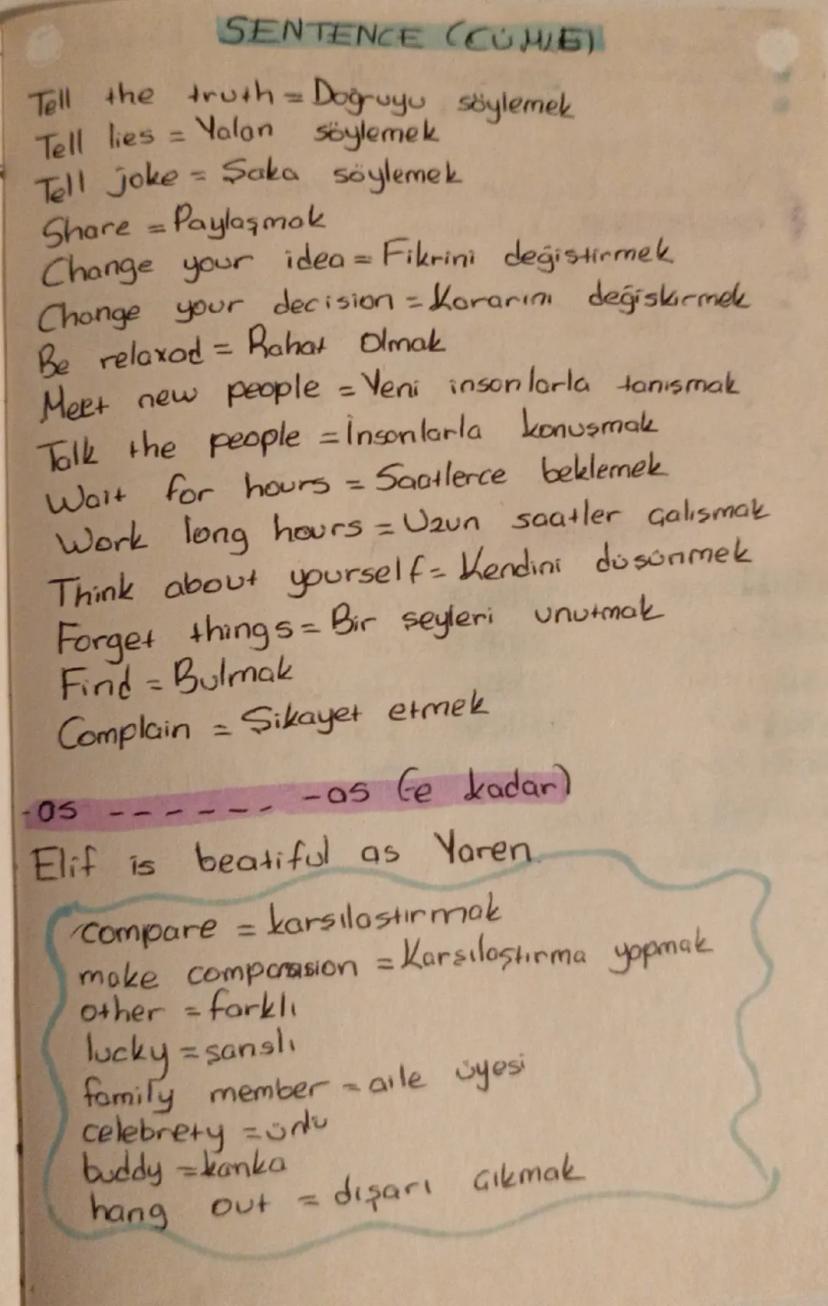 SENTENCE (CÜMLE)
Tell the truth = Doğruyu söylemek
Tell lies = Yalan söylemek
Tell joke = Şaka söylemek
Share = Paylaşmak
Change your idea = Fikrini değistirmek
Change your decision = Kararını değiskirmek
Be relaxod = Rahat Olmak
Meet new people = Yeni insanlarla tanısmak
Talk the people = İnsanlarla konuşmak
Wait for hours = Saatlerce beklemek
Work long hours = Uzun saatler çalısmak
Think about yourself = Kendini düsünmek
Forget things = Bir seyleri unutmak
Find = Bulmak
Complain = Şikayet etmek
-as - - - - - - -as (-e kadar)
Elif is beatiful as Yaren
compare = karsılastırmak
make comparasion = Karsılaştırma yapmak
other = farklı
lucky = sanslı
family member = aile üyesi
celebrety = ünlü
buddy = kanka
hang out = dışarı çıkmak